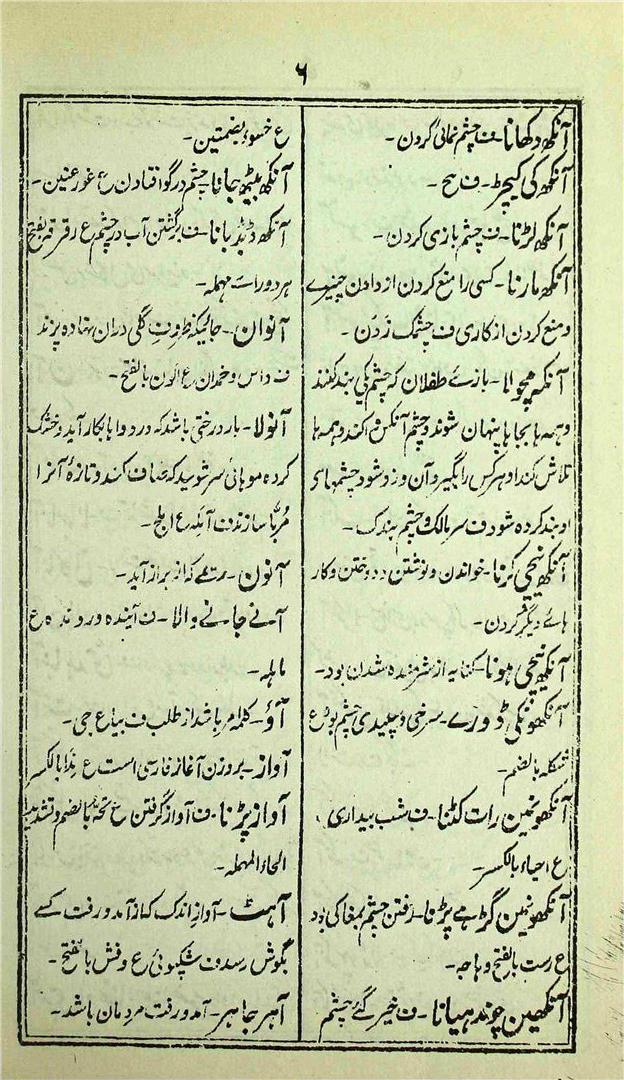 ۶
آنکھ دکھانا۔ ف چشم نمائی کردن۔
آنکھ کی کیچڑ۔ ف پیخ۔
آنکھ لڑنا۔ ف چشم بازی کردن۔
آنکھ مارنا۔ کسی را منع کردن از دادن چیزے
و منع کردن از کاری ف چشمک زدن۔
آنکھ مچولا۔ بازئے طفلان کہ چشم یکی بند کنند
و ہمہ ہا بجا ہا پنہان شوند و چشم آنکس وا کنند و ہمہ ہا
تلاش کند و ہر کس را بگیرد آن دزد شود چشمہای
او بند کردہ شود ف سر مالک و چشم بندک۔
آنکھ نیچی کرنا۔ خواندن و نوشتن و دوختن و کار
ہائے دیگر کردن۔
آنکھ نیچی ہونا۔ کنایہ از شرمندہ شدن بود۔
آنکھونکی ڈورے۔ سرخی و سپیدی چشم بود ع
شکلہ بالضم۔
آنکھونمین رات کٹنا۔ ف شب بیداری
ع احیاء بالکسر۔
آنکھونمین گڑھے پڑنا۔ رفتن چشم بمغاکی بود
ع رسب بالفتح و ہاجہ۔
آنکھین چوندہیانا۔ ف خیرگئے چشم
ع خسوء بضمتین۔
آنکھ بیٹھ جانا۔ چشم در گو افتادن ع غور عنین۔
آنکھ ڈبڈبانا۔ ف برگشتن آب در چشم ع رقرقہ بفتح
ہر دو راے مہملہ۔
آنوان۔ جائیکہ ظروف گلی دران نہادہ پزند
ف داس و خمدان ع اتون بالفتح۔
آنولا۔ بار درختی باشد کہ در دواہا بکار آید و خشک
کردہ موہائے سر شویند کہ صاف کند و تازۂ آنرا
مربا سازند ف آملہ ع املج۔
آنون۔ کہ از براز آید۔
آنے جانے والا۔ ف آیندہ و روندہ ع
مابلہ۔
آؤ۔ کلمہ امر باشد از طلب ف بیا ع جی۔
آواز۔ بروزن آغاز فارسی است ع ندا بالکسر
آواز پڑنا۔ ف آواز گرفتن ع بُحّہ بالضم و تشدید
الحاء المہملہ۔
آہٹ۔ آواز اندک کہ از آمد و رفت کسے
بگوش رسد ف شکپوئی ع وقش بالفتح۔
آہر جاہر۔ آمد و رفت مردمان باشد۔